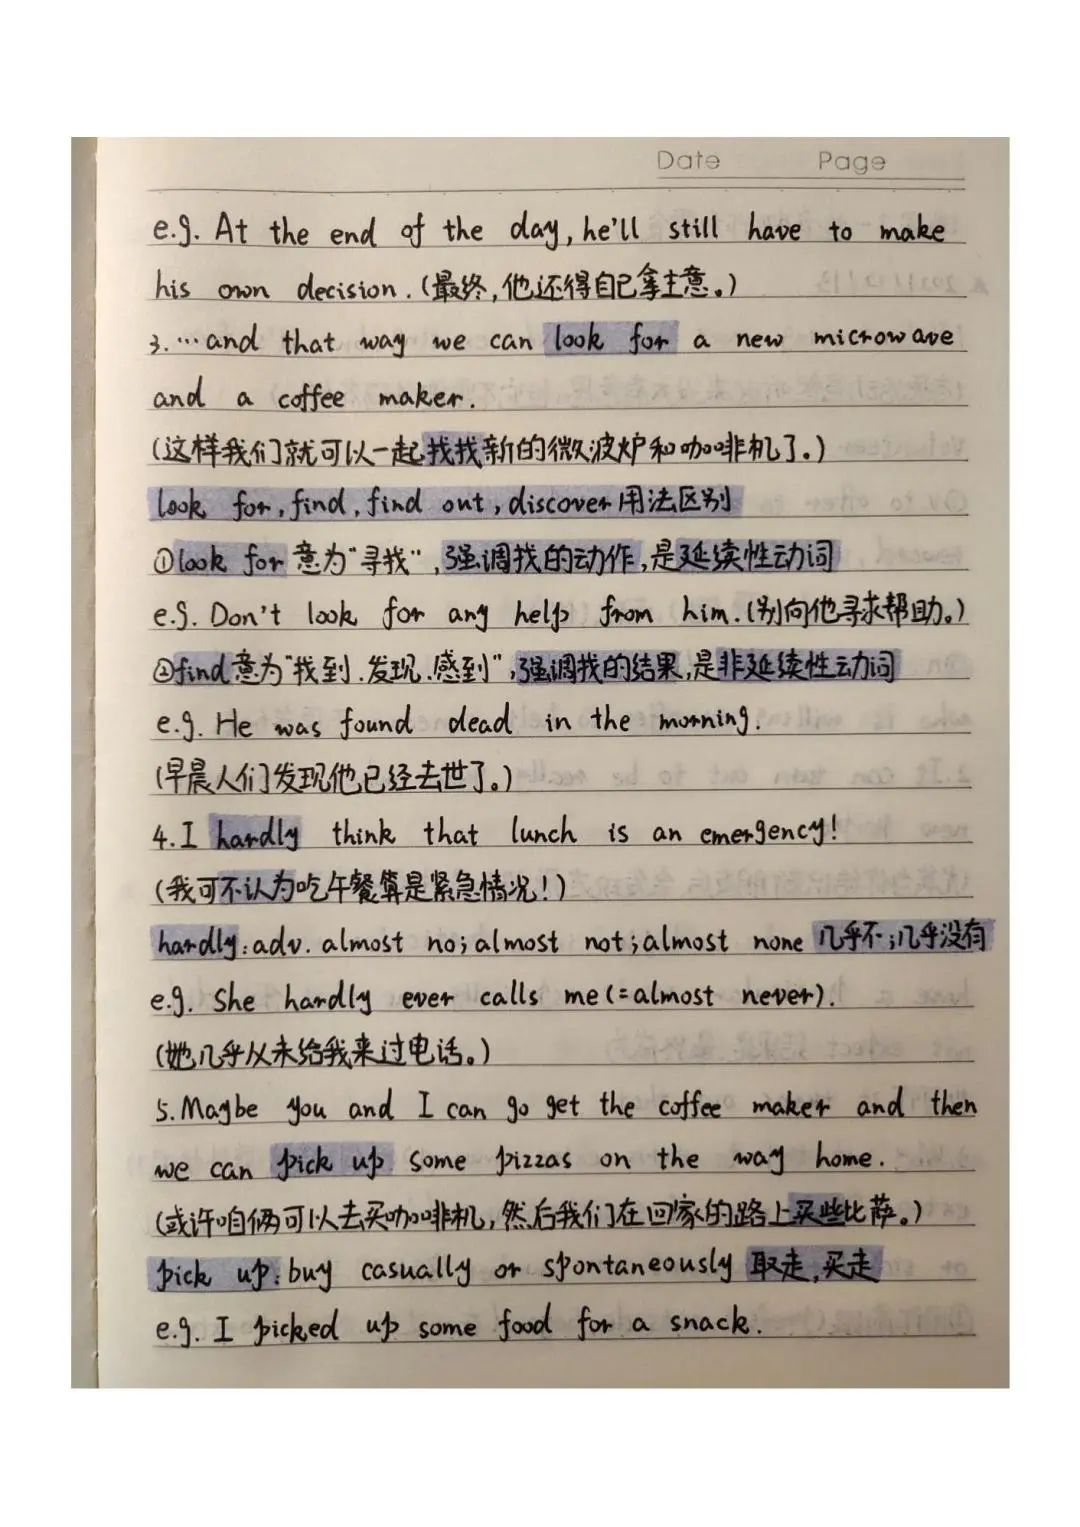 Date Page
e.g. At the end of the day, he'll still have to make
his own decision. (最终,他还得自己拿主意。)
3. …and that way we can look for a new microwave
and a coffee maker.
(这样我们就可以一起找找新的微波炉和咖啡机了。)
look for, find, find out, discover 用法区别
①look for 意为"寻找",强调找的动作,是延续性动词
e.g. Don't look for any help from him. (别向他寻求帮助。)
②find意为"找到.发现.感到",强调找的结果,是非延续性动词
e.g. He was found dead in the morning.
(早晨人们发现他已经去世了。)
4. I hardly think that lunch is an emergency!
(我可不认为吃午餐算是紧急情况!)
hardly: adv. almost no; almost not; almost none 几乎不;几乎没有
e.g. She hardly ever calls me (=almost never).
(她几乎从未给我来过电话。)
5. Maybe you and I can go get the coffee maker and then
we can pick up some pizzas on the way home.
(或许咱俩可以去买咖啡机,然后我们在回家的路上买些比萨。)
pick up: buy casually or spontaneously 取走,买走
e.g. I picked up some food for a snack.